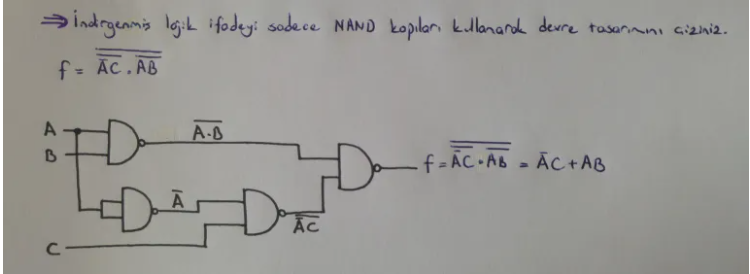 ⇒ İndirgenmiş lojik ifadeyi sadece NAND kapıları kullanarak devre tasarımını çiziniz.
f = \overline{\overline{\overline{A}C} . \overline{AB}}
A
B
\overline{A.B}
\overline{A}
C
\overline{\overline{A}C}
f = \overline{\overline{\overline{A}C} . \overline{AB}} = \overline{A}C + AB